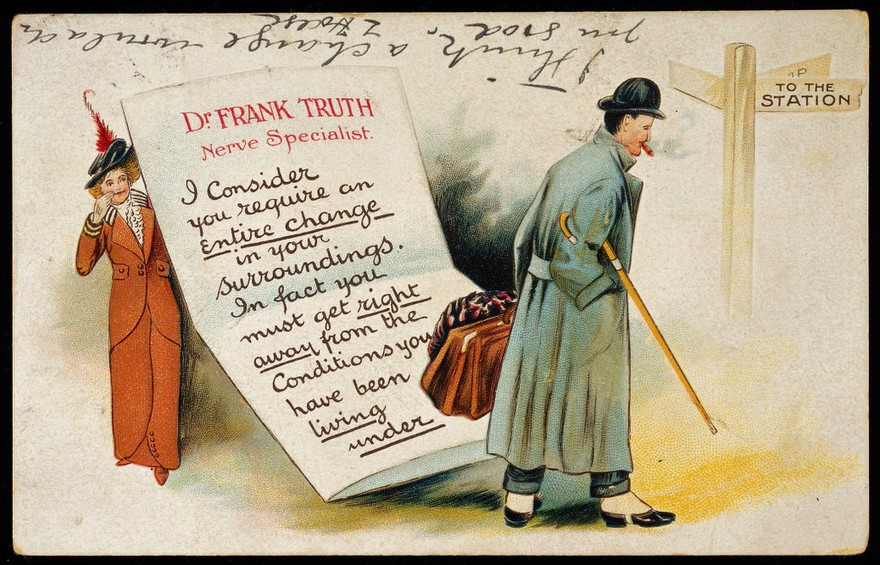 I Think a change would do
you good.
Dr. FRANK TRUTH
Nerve Specialist.
I Consider
you require an
Entire change
in your
surroundings.
In fact you
must get right
away from the
Conditions you
have been
living
under.
TO THE
STATION